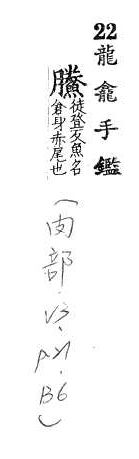 22 龍龕手鑑
鰧 徒登反魚名
倉身赤尾也
(肉部.V3. B6)